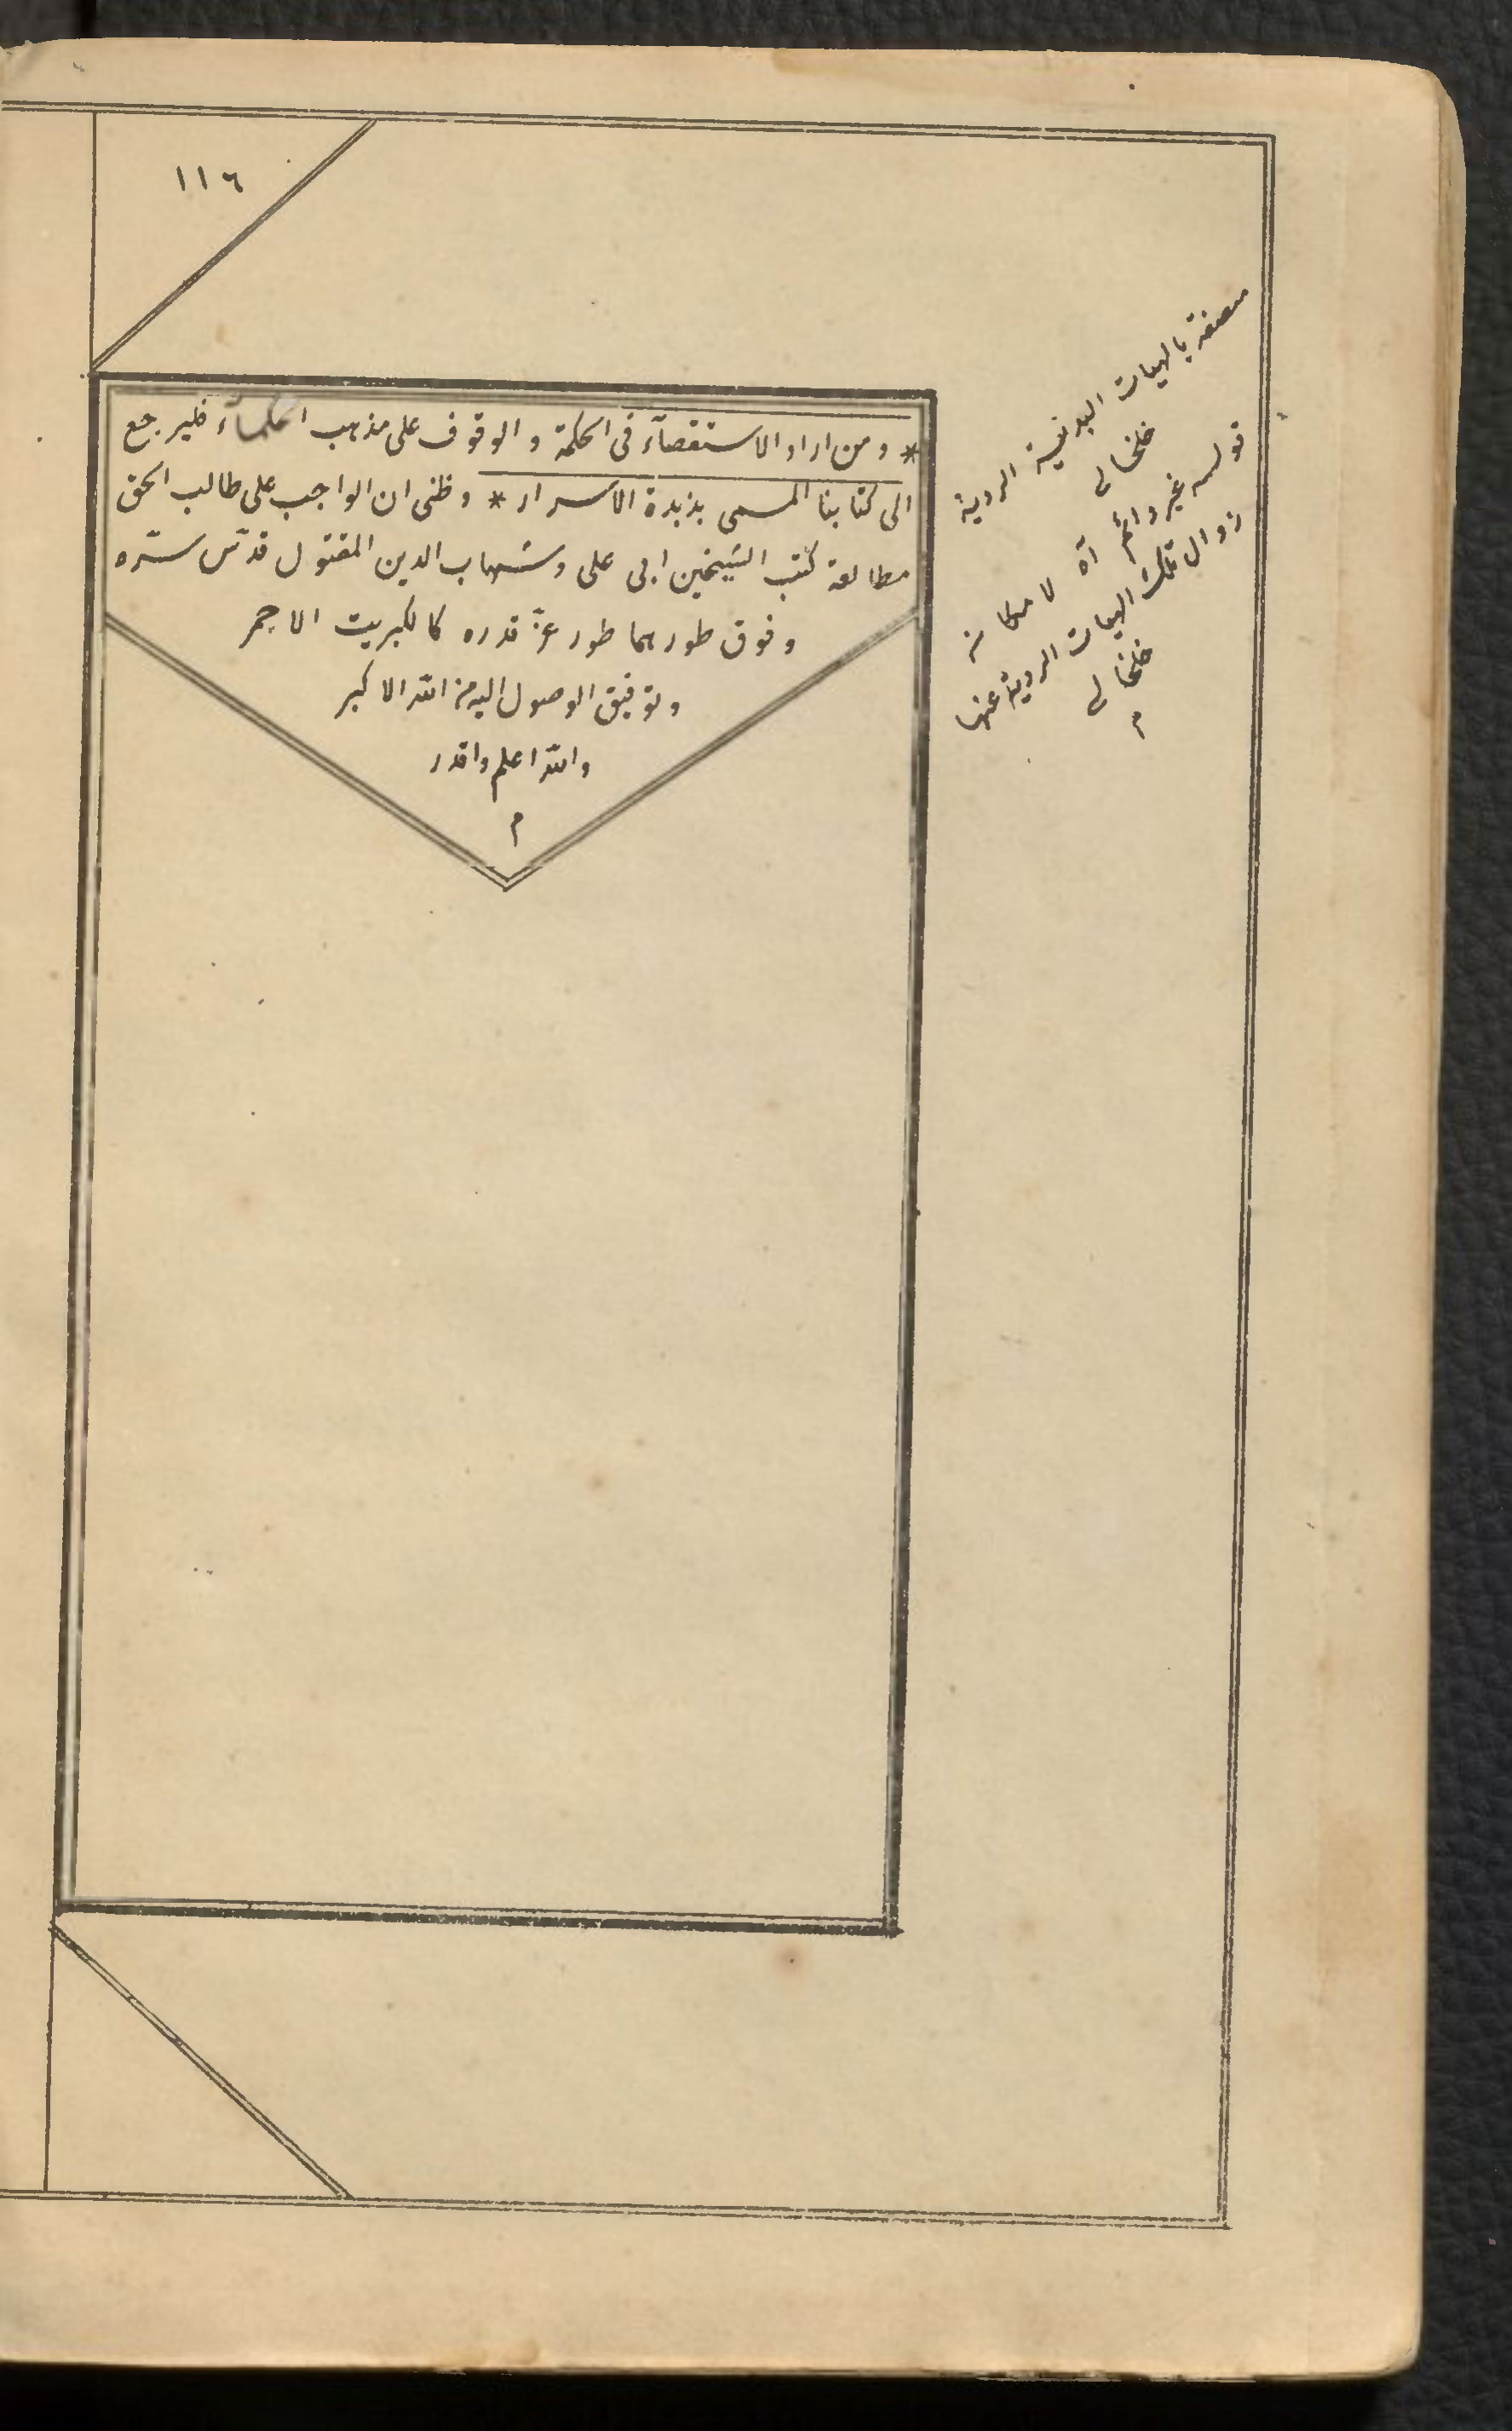 ١١٦
* ومن اراد الاستقصآء فى الحكمة و الوقوف على مذهب الحكمآء فليرجع
الى كتابنا المسمى بزبدة الاسرار * وظنى ان الواجب على طالب الحق
مطالعة كتب الشيخين ابى على وشهاب الدين المقتول قدّس سرّه
وفوق طورهما طور عزّ قدره كالكبريت الاحمر
وتوفيق الوصول اليه من الله الاكبر
والله اعلم واقدر
م
متصفة بالهيات البدنية الردية
خلخالى
قوله غير دائم آه لامكانه
زوال تلك الهيات الردية عنها
خلخالى
م